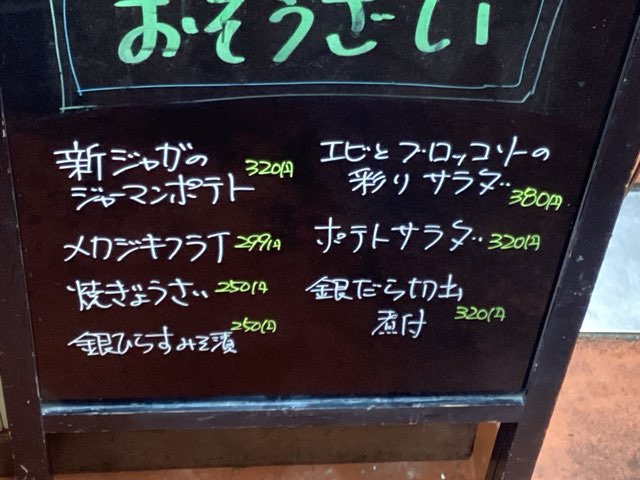 おそうざい
新ジャガの
ジャーマンポテト 320円
メカジキフライ 299円
焼きぎょうざ 250円
銀ひらすみそ漬 250円
エビとブロッコリーの
彩りサラダ 380円
ポテトサラダ 320円
銀だら切出
煮付 320円